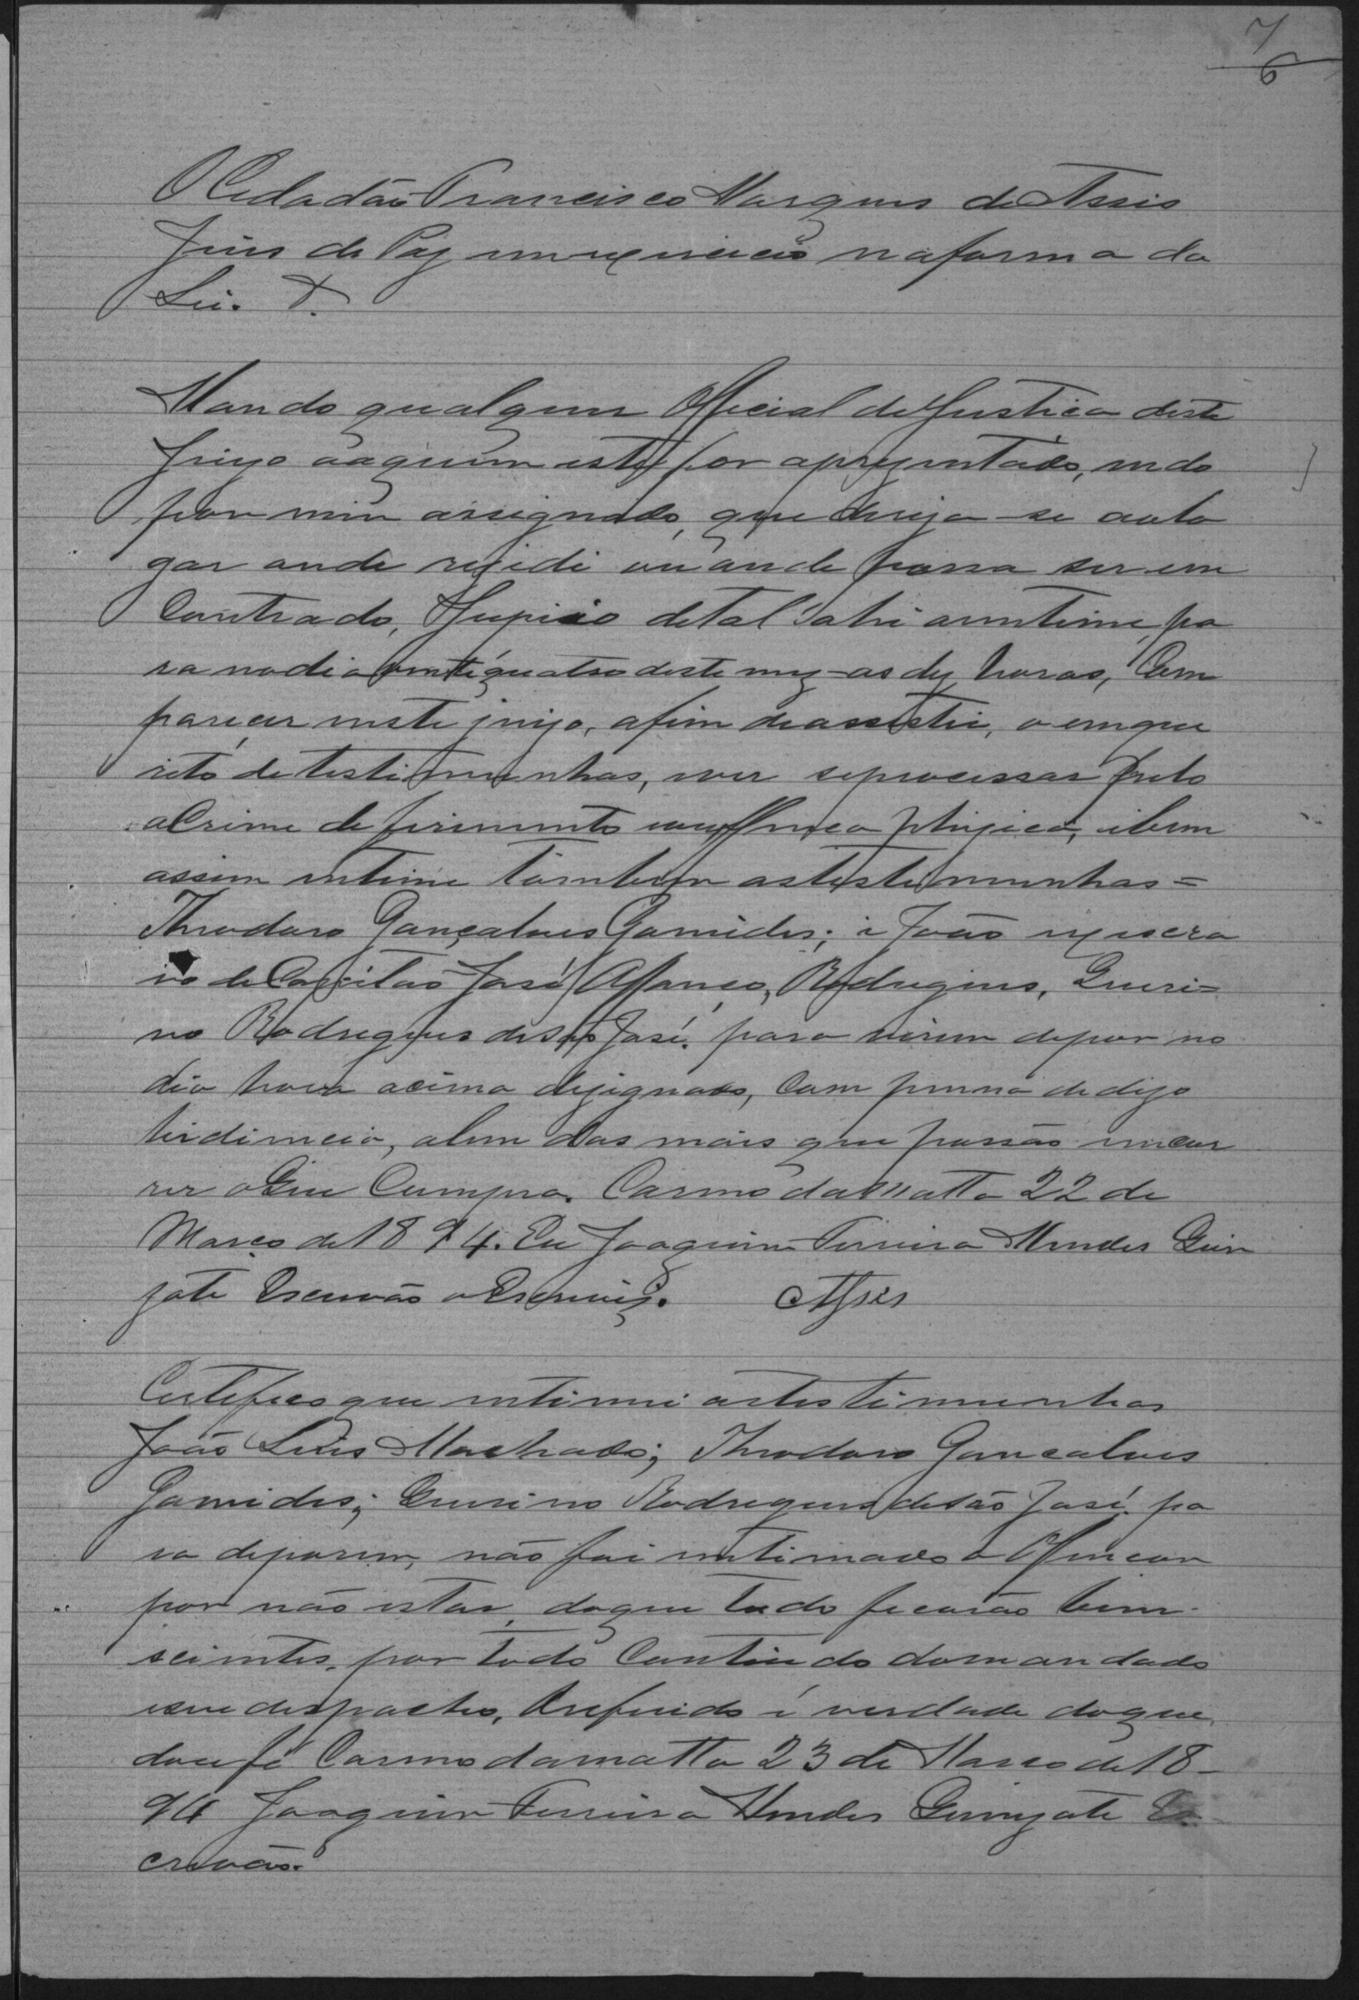 7
6
O Cidadão Francisco Marques de Assis
Juis de Paz em exericicio na forma da
Lei. &.
Mando qualquer Official de Justica deste
Juizo aaquem este for aprezentado, indo
por mim assignado, que dirija-se ao lo
gar onde rezide ou onde possa ser en
Contrado, de tal e ahi o intime, pa
ra no dia vinte quatro deste mez as dez horas, Com
parecer neste juizo, afim de assistir, o enque
rito de testimunhas, e ver se processar pelo
o Crime de ferimento e offença phizica, e bem
assim intime tambem as testimunhas=
Theodoro Gonçalves Gamides; e João
de Capitão José Affonço, Rodrigues, Gueri=
no Rodrigues de São José. para virem depor no
dia hora acima dezignado, Com penna de dezo
bidiencia, alem das mais que possão encor
rer o Que Cumpra. Carmo da Matta 22 de
Março de 1894. Eu Joaquim Ferreira Mendes Guin
zate Escrivão o Escrevij. Assis
Certefico que intimei as testimunhas
João Luis Machado; Theodoro Goncalves
Gamides; Guerino Rodrigues de São José. pa
ra deporem, não foi intimado o
por não estar, do que tudo ficarão bem
scientes, por todo Contiudo do mandado
e seu despacho, O referido é verdade do que
dou fé Carmo da matta 23 de Marco de 18-
94 Joaquim Ferreira Mendes Guinzate Es
crivão.